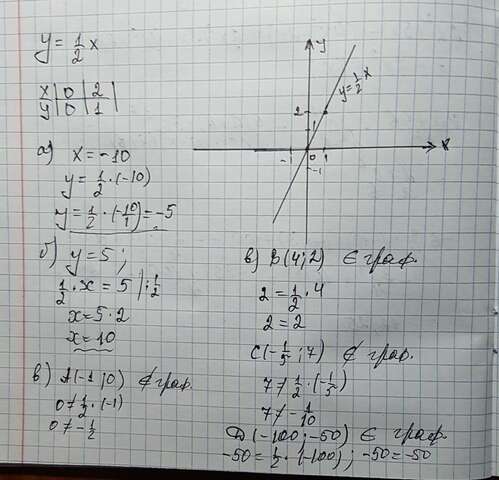 y = 1/2 x
x | 0 | 2 |
y | 0 | 1 |
а) x = -10
y = 1/2 · (-10)
y = 1/2 · (-10/1) = -5
б) y = 5 ;
1/2 · x = 5 | : 1/2
x = 5 · 2
x = 10
в) A(-1; 0) ∉ граф.
0 ≠ 1/2 · (-1)
0 ≠ -1/2
y
y = 1/2 x
2
1
-1 0 1 x
-1
в) B(4; 2) ∈ граф.
2 = 1/2 · 4
2 = 2
C(-1/5 ; 7) ∉ граф.
7 ≠ 1/2 · (-1/5)
7 ≠ -1/10
D(-100; -50) ∈ граф.
-50 = 1/2 · (-100) ; -50 = -50